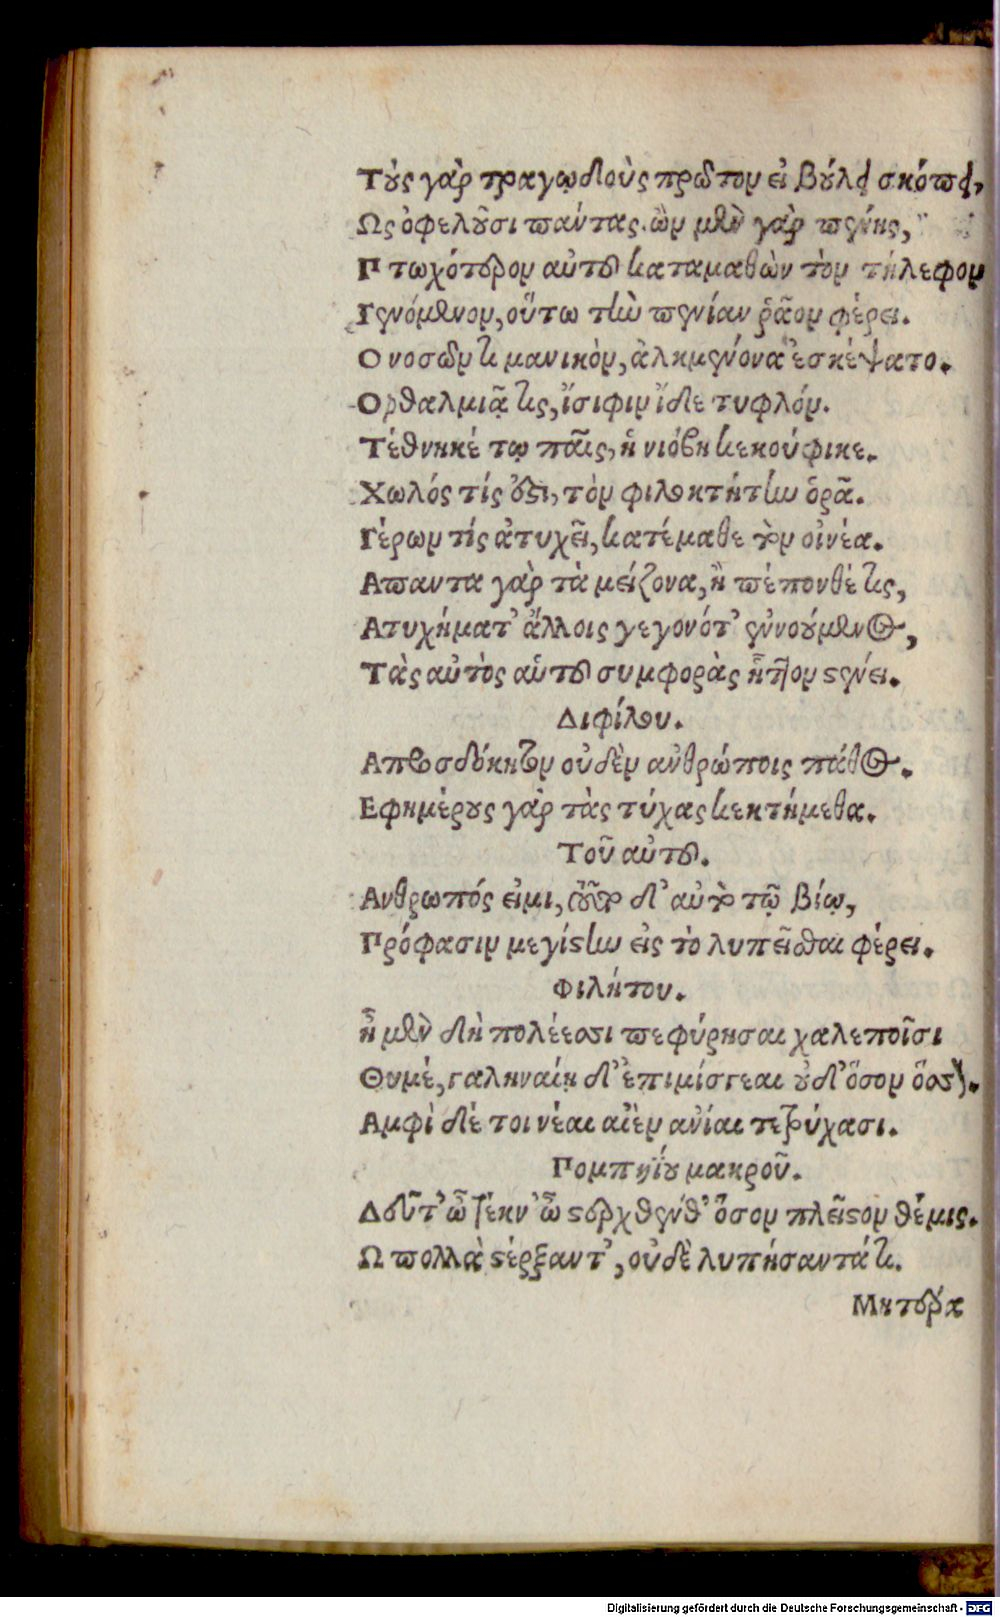 Τοὺς γὰρ τραγῳδοὺς πρῶτον εἰ βούλει σκόπει,
Ως ὀφελοῦσι πάντας. ὢν μὲν γὰρ πένης,
Πτωχότερον αὐτοῦ καταμαθὼν τὸν τήλεφον
Γενόμενον, οὕτω τὴν πενίαν ῥᾷον φέρει.
Ο νοσῶν τι μανικὸν, ἀλκμαίονα ἐσκέψατο.
Οφθαλμιᾷ τις, ἴσι φιν ἴδε τυφλόν.
Τέθνηκέ τῳ παῖς, ἡ νιόβη κεκούφικε.
Χωλός τίς ὅστι, τὸν φιλοκτήτην ὁρᾷ.
Γέρων τίς ἀτυχεῖ, κατέμαθε τὸν οἰνέα.
Απαντα γὰρ τὰ μείζονα, ἢ πέπονθέ τις,
Ατυχήματ' ἄλλοις γεγονότ' ἐννούμενος,
Τὰς αὐτὸς αὑτοῦ συμφορὰς ἧττον στένει.
Διφίλου.
Απροσδόκητον οὐδὲν ἀνθρώποις πάθος.
Εφημέρους γὰρ τὰς τύχας κεκτήμεθα.
Τοῦ αὐτοῦ.
Ανθρωπός εἰμι, τοῦτο δ' αὐτὸ τῷ βίῳ,
Πρόφασιν μεγίστην εἰς τὸ λυπεῖσθαι φέρει.
Φιλήτου.
ἦ μὲν δὴ πολέεσσι πεφύρησαι χαλεποῖσι
Θυμέ, γαληναίῃ δ' ἐπιμίσγεαι οὐδ' ὅσον ὅσσον.
Αμφὶ δέ τοι νέαι αἰὲν ἀνίαι τετρύχασι.
Πομπηίου μακροῦ.
Δεῦτ' ὦ τέκν' ὦ στερχθένθ' ὅσον πλεῖστον θέμις.
Ω πολλὰ στέρξαντ', οὐδὲ λυπήσαντά τι.
Μητέρα
Digitalisierung gefördert durch die Deutsche Forschungsgemeinschaft - DFG